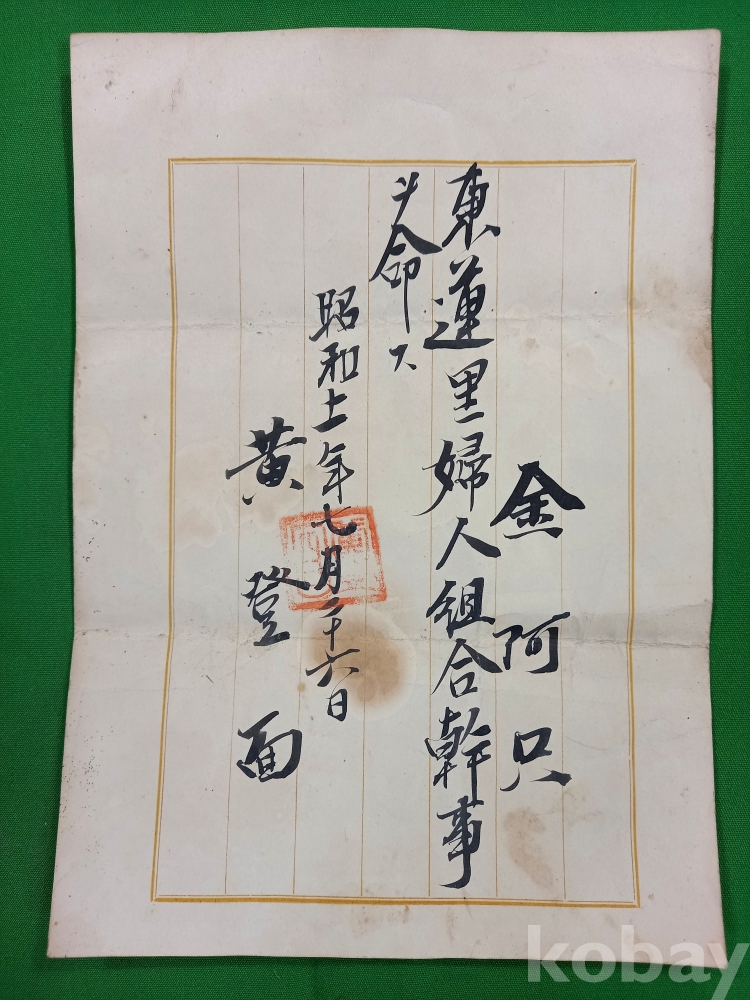 金阿只
東蓮里婦人組合幹事
ヲ命ス
昭和十一年七月二十六日
黄登面
kobay